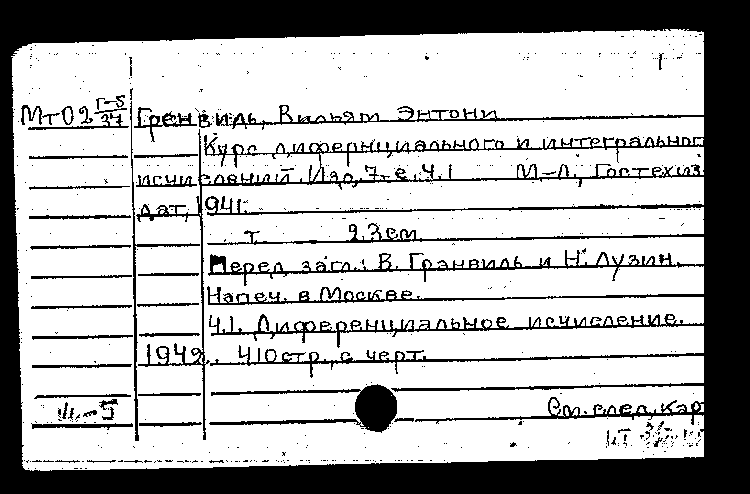 МтО2 Г-5/37 Гренвиль, Вильям Энтони
Курс диференциального и интегральног
исчислений. Изд. 7-е. Ч. 1 М.-Л., Гостехиз-
дат, 1941.
т. 23см.
Перед загл.: В. Гранвиль и Н. Лузин.
Напеч. в Москве.
Ч.1. Диференциальное исчисление.
1942. 410стр., с черт.
См. след. кар